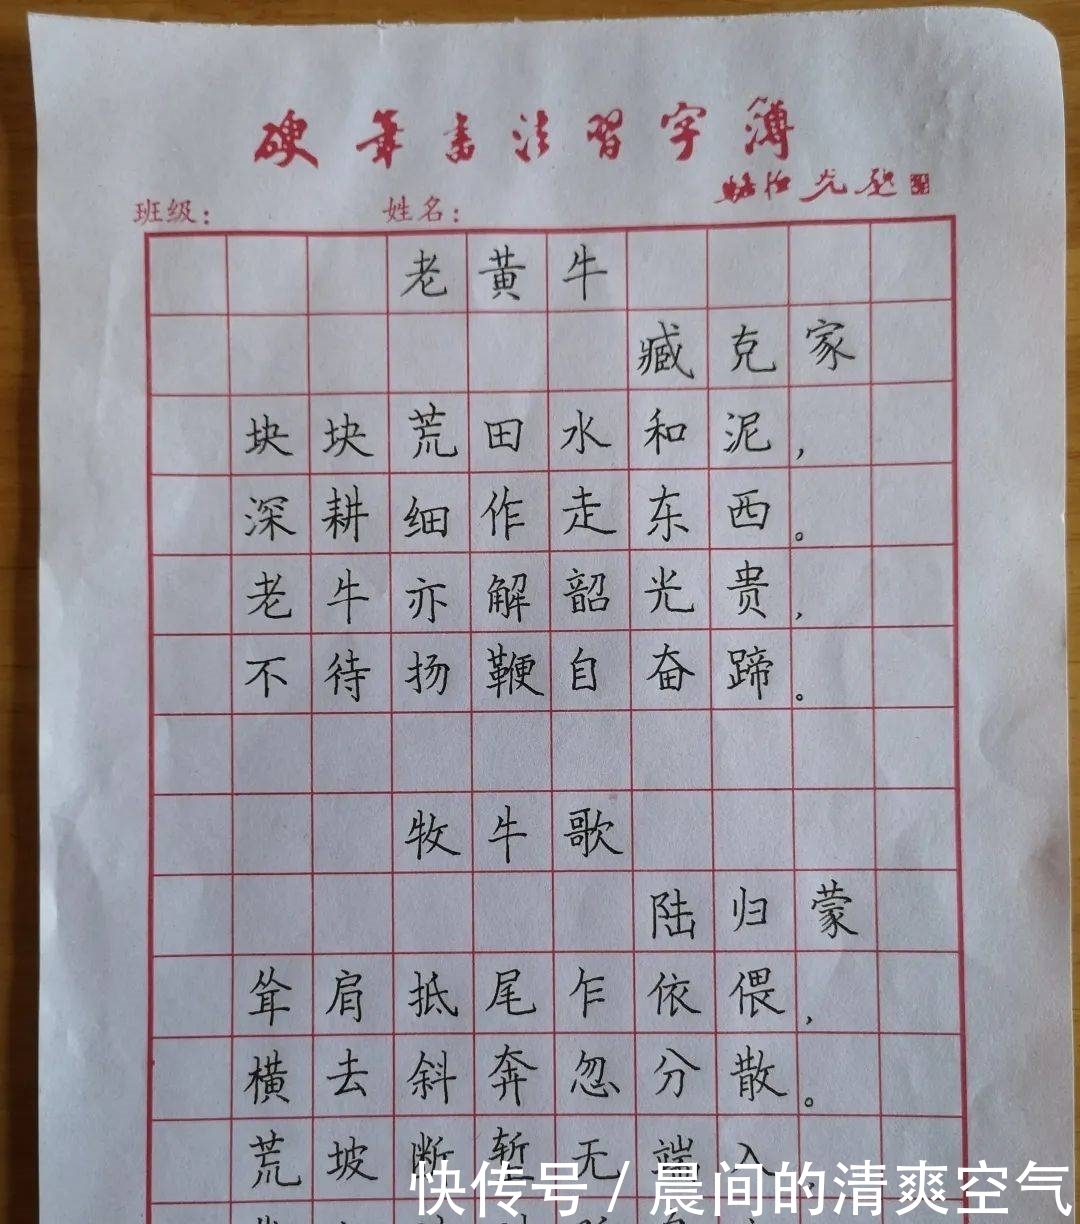 硬笔书法习字簿
班级： 姓名：
老黄牛
臧克家
块块荒田水和泥，
深耕细作走东西。
老牛亦解韶光贵，
不待扬鞭自奋蹄。
牧牛歌
陆归蒙
耸肩抵尾乍依偎，
横去斜奔忽分散。
荒坡断堑无端入，
快传号 / 晨间的清爽空气